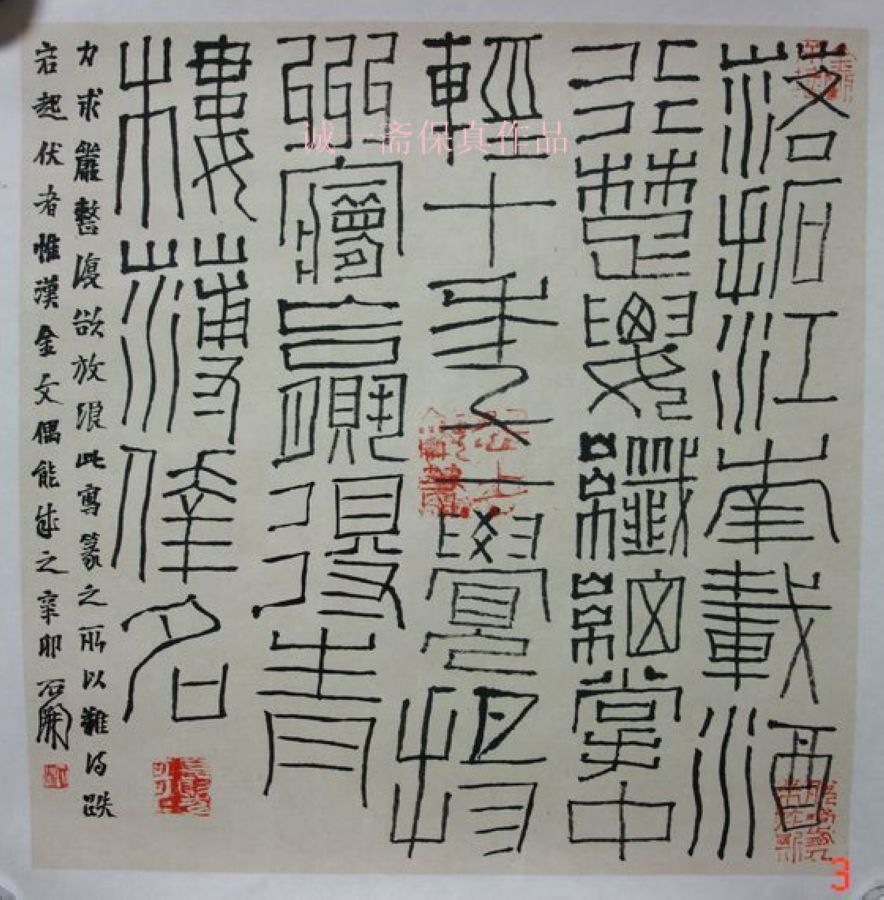 落拓江南載酒
行楚腰纖細掌中
輕十年一覺揚
州夢贏得青
樓薄倖名
力求嚴整復欲放浪此寫篆之所以難得跌
宕起伏者惟漢金文偶能之辛卯石開
诚一斋保真作品
3